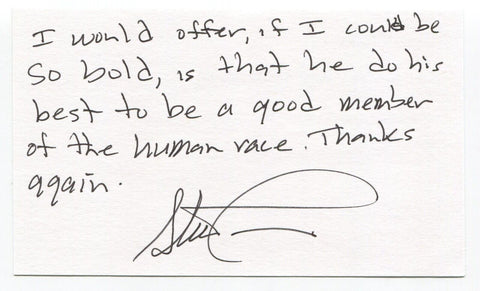 I would offer, if I could be
So bold, is that he do his
best to be a good member
of the human race. Thanks
again.